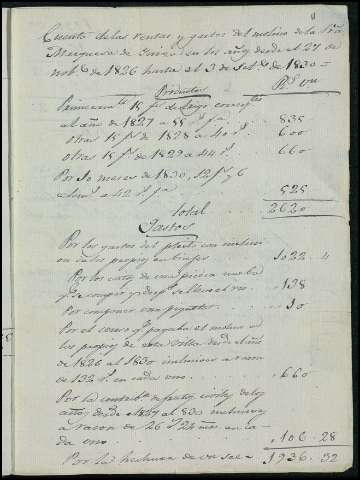 Cuenta de las rentas y gastos del molino de la Sra
Marquesa de          en los años desde el 27 de
nobe de 1826 hasta el 3 de Sete de 1830 =
Productos Rs vn
Primeramte 15 fs de trigo correspte
al año de 1827 a 55 rs fa . . 835
otras 15 fs de 1828 a 40 rs . . 600
otras 15 fs de 1829 a 44 rs . . 660
Por 10 meses de 1830, 12 fs y 6
a 42 rs fa . . . 525
total . . . 2620
Gastos
Por los gastos del pleito con
los propios . . 1022 . 4
Por los de una piedra
. . 138
Por componer una . . 10
Por el censo qe pagaba el molino a
los propios de esta Villa desde el año
de 1826 al 1830 inclusive a razon
de 132 rs en cada uno . . . 660
Por la contribn de frutos civiles de los
años desde 1827 al 830 inclusive
a razon de 26 rs 24 mrs en ca-
da uno . . . 106 . 28
Por la hechura de 1936 . 32